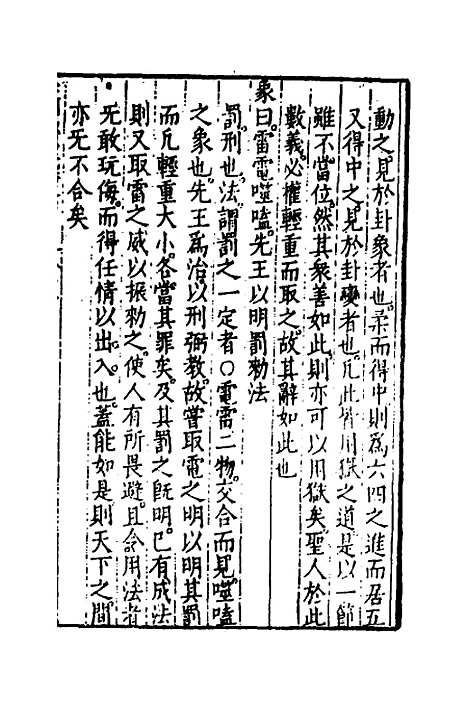 動之見於卦象者也柔而得中則爲六四之進而居五
又得中之見於卦變者也凡此皆用獄之道是以一節
雖不當位然其衆善如此則亦可以用獄矣聖人於此
數義必權輕重而取之故其辭如此也
象曰雷電噬嗑先王以明罰勑法
罰刑也法謂罰之一定者○電雷二物交合而見噬嗑
之象也先王爲治以刑弼教故嘗取電之明以明其罰
而凢輕重大小各當其罪矣及其罰之旣明已有成法
則又取雷之威以振勑之使人有所畏避且令用法者
旡敢玩侮而得任情以出入也蓋能如是則天下之間
亦旡不合矣